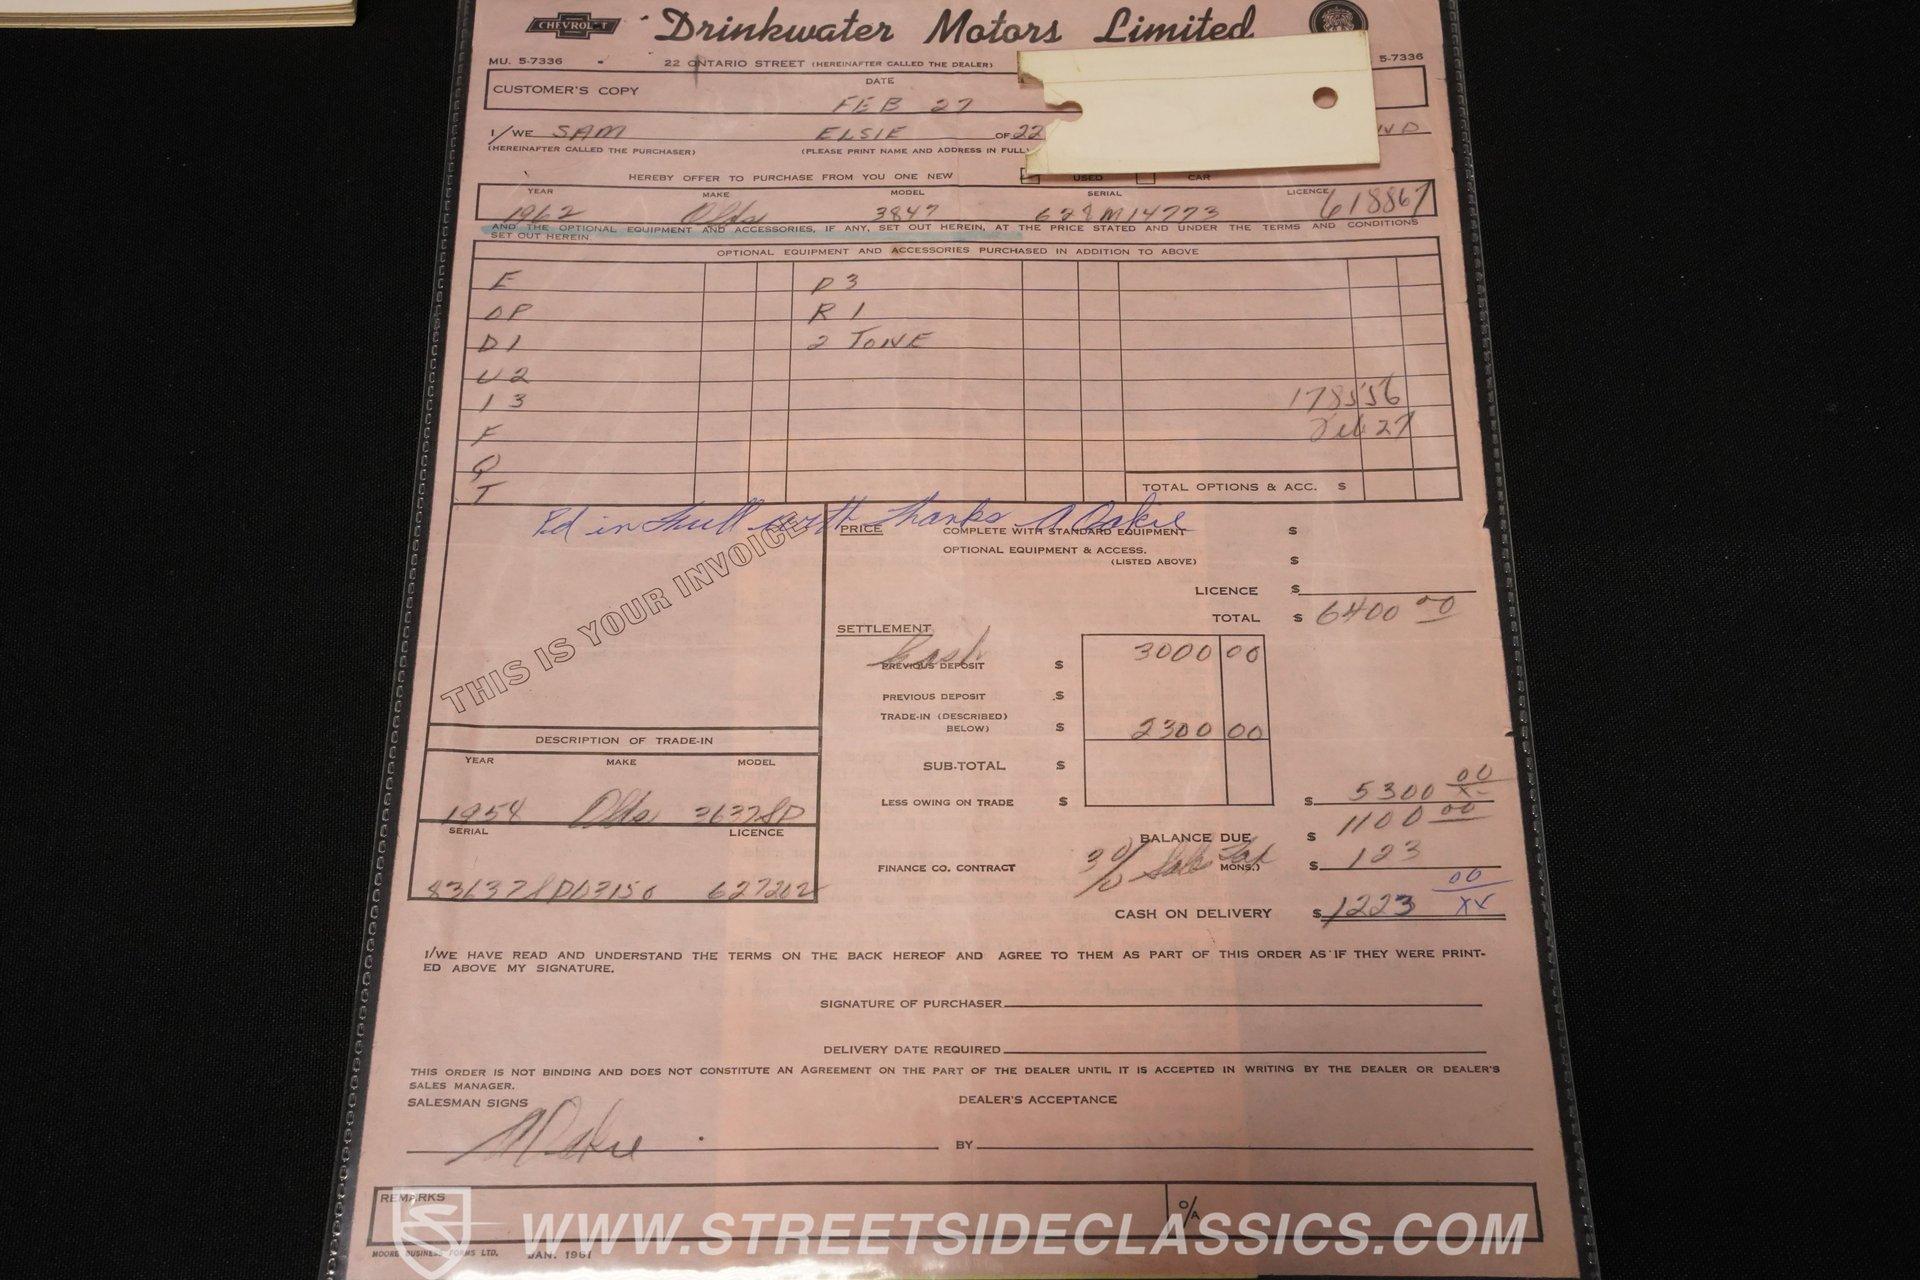 CHEVROLET Drinkwater Motors Limited
MU. 5-7336 22 ONTARIO STREET (HEREINAFTER CALLED THE DEALER) 5-7336
CUSTOMER'S COPY DATE
FEB 27
I/WE SAM ELSIE OF 22
(HEREINAFTER CALLED THE PURCHASER) (PLEASE PRINT NAME AND ADDRESS IN FULL)
HEREBY OFFER TO PURCHASE FROM YOU ONE NEW USED CAR
YEAR MAKE MODEL SERIAL LICENCE
1962 Olds 3847 628M14773 618867
AND THE OPTIONAL EQUIPMENT AND ACCESSORIES, IF ANY, SET OUT HEREIN, AT THE PRICE STATED AND UNDER THE TERMS AND CONDITIONS
SET OUT HEREIN
OPTIONAL EQUIPMENT AND ACCESSORIES PURCHASED IN ADDITION TO ABOVE
E P 3
OP R 1
D 1 2 TONE
U 2
1 3 178556
F Feb 27
Q
T TOTAL OPTIONS & ACC. $
Pd in full with thanks A Oakie
THIS IS YOUR INVOICE
PRICE COMPLETE WITH STANDARD EQUIPMENT $
OPTIONAL EQUIPMENT & ACCESS.
(LISTED ABOVE) $
LICENCE $
TOTAL $ 6400 00
SETTLEMENT
Cash
PREVIOUS DEPOSIT $ 3000 00
PREVIOUS DEPOSIT $
TRADE-IN (DESCRIBED
BELOW) $ 2300 00
SUB-TOTAL $
LESS OWING ON TRADE $ $ 5300 00/xx
BALANCE DUE $ 1100 00
FINANCE CO. CONTRACT 3% Sales Tax MONS.) $ 123
CASH ON DELIVERY $ 1223 00/XX
DESCRIPTION OF TRADE-IN
YEAR MAKE MODEL
1958 Olds 3637SD
SERIAL LICENCE
627202
I/WE HAVE READ AND UNDERSTAND THE TERMS ON THE BACK HEREOF AND AGREE TO THEM AS PART OF THIS ORDER AS IF THEY WERE PRINT-
ED ABOVE MY SIGNATURE.
SIGNATURE OF PURCHASER
DELIVERY DATE REQUIRED
THIS ORDER IS NOT BINDING AND DOES NOT CONSTITUTE AN AGREEMENT ON THE PART OF THE DEALER UNTIL IT IS ACCEPTED IN WRITING BY THE DEALER OR DEALER'S
SALES MANAGER.
SALESMAN SIGNS DEALER'S ACCEPTANCE
A Oakie BY
REMARKS O/A
WWW.STREETSIDECLASSICS.COM
MOORE BUSINESS FORMS LTD. JAN. 1961